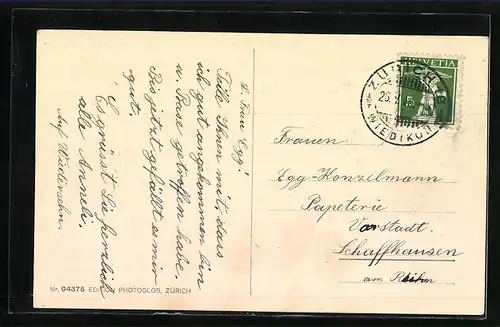 L. Frau Egg!
Teile Ihnen mit, dass
ich gut angekommen bin
u. Rosa getroffen habe.
Bis jetzt gefällt es mir
gut.
Es grüsst Sie herzlich
alle Anneli.
Auf Wiedersehn.
HELVETIA
5
ZÜRICH
WIEDIKON
Frauen
Egg-Konzelmann
Papeterie
Vorstadt.
Schaffhausen
am Rhein
Nr. 04376 EDITION PHOTOGLOB, ZÜRICH